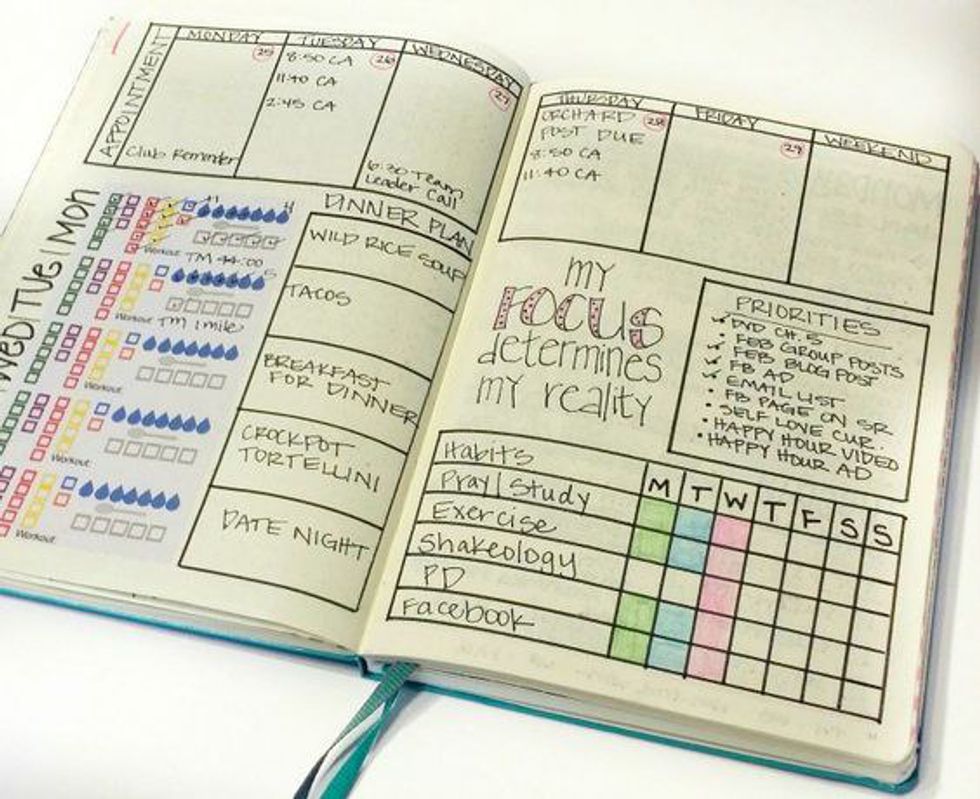 APPOINTMENT
MONDAY
25
Club Reminder
TUESDAY
26
8:50 CA
11:40 CA
2:45 CA
WEDNESDAY
27
6:30 Team
Leader Call
THURSDAY
28
ORCHARD
POST DUE
8:50 CA
11:40 CA
FRIDAY
29
WEEKEND
Wed|Tue|Mon
Workout TM 44:00
Workout TM 1 mile
Workout
Workout
Workout
DINNER PLAN
WILD RICE SOUP
TACOS
BREAKFAST
FOR DINNER
CROCKPOT
TORTELLINI
DATE NIGHT
my
FOCUS
determines
my reality
PRIORITIES
DVD CH. 5
FEB GROUP POSTS
FEB BLOG POST
FB AD
EMAIL LIST
FB PAGE ON SR
SELF LOVE CUR.
HAPPY HOUR VIDEO
HAPPY HOUR AD
Habits
M T W T F S S
Pray|Study
Exercise
Shakeology
PD
Facebook